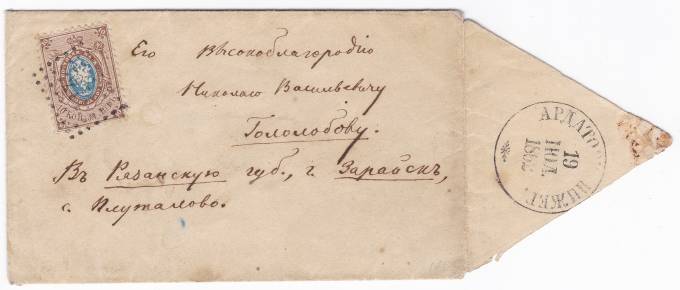 Его Высокоблагородію
Николаю Васильевичу
Гололобову.
Въ Рязанскую губ., г. Зарайскъ,
с. Плуталово.
АРДАТО
19
ІЮЛ.
НИЖЕГ.